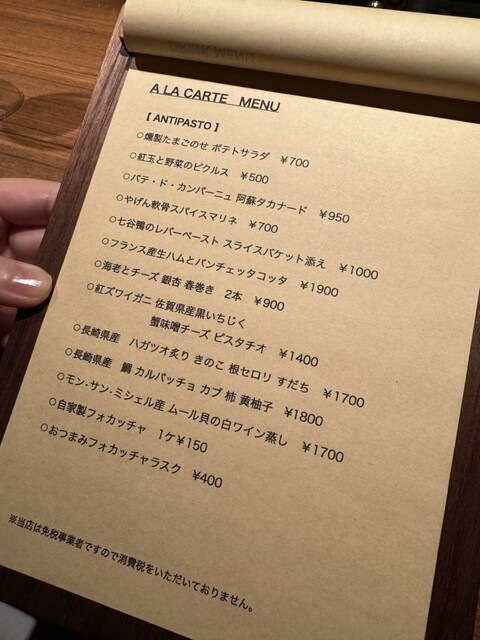 A LA CARTE MENU
【 ANTIPASTO 】
○燻製たまごのせ ポテトサラダ ¥700
○紅玉と野菜のピクルス ¥500
○パテ・ド・カンパーニュ 阿蘇タカナード ¥950
○やげん軟骨スパイスマリネ ¥700
○七谷鴨のレバーペースト スライスバケット添え ¥1000
○フランス産生ハムとパンチェッタコッタ ¥1900
○海老とチーズ 銀杏 春巻き 2本 ¥900
○紅ズワイガニ 佐賀県産黒いちじく
蟹味噌チーズ ピスタチオ ¥1400
○長崎県産 ハガツオ炙り きのこ 根セロリ すだち ¥1700
○長崎県産 鯛 カルパッチョ カブ 柿 黄柚子 ¥1800
○モン・サン・ミシェル産 ムール貝の白ワイン蒸し ¥1700
○自家製フォカッチャ 1ケ¥150
○おつまみフォカッチャラスク ¥400
※当店は免税事業者ですので消費税をいただいておりません。